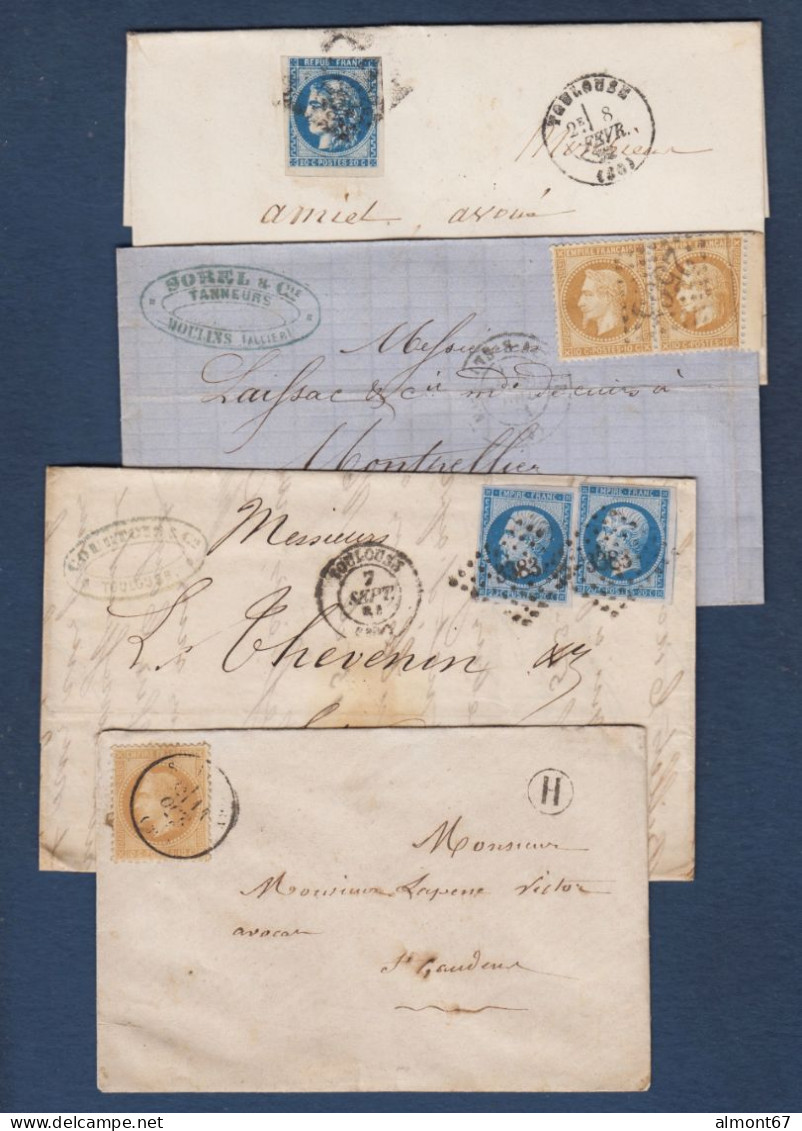 REPUB FRANC
20 C POSTES 20 C
TOULOUSE
2E 8
FEVR.
Monsieur
amiel, avoué
SOREL & CIE
TANNEURS
MOULINS (ALLIER)
EMPIRE FRANÇAIS
10 C POSTES 10 C
2598
Messieurs
Laissac & cie md de cuirs à
Montpellier
TOULOUSE
EMPIRE FRANC
EMPIRE FRANC
3983
3983
Messieurs
TOULOUSE
7
SEPT.
L. Thevenin
EMPIRE FRANÇAIS
H
Monsieur
Monsieur Lapene Victor
avocat
St Gaudens
www.delcampe.net
almont67